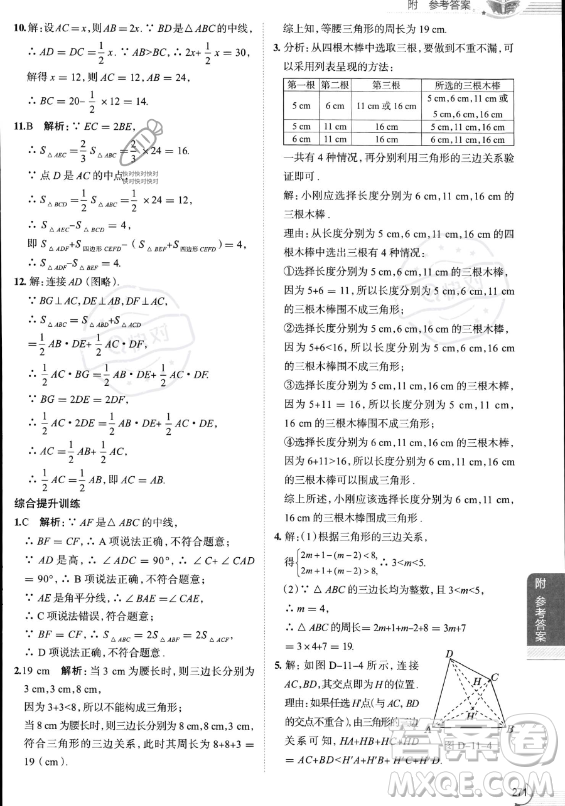 附 参考答案
10.解:设AC=x,则AB=2x.∵AD=BD,
∴AD=DC=1/2x.∵AB>BC,∴2x+1/2x=30,
解得x=12,则AC=12,
∴BC=20-1/2×12=14.
11.B 解析:∵EC=2BE,
∴S△AEC=2/3S△ABC=2/3×24=16.
∵点D是AC的中点,
∴S△BCD=1/2S△ABC=1/2×24=12,
∴S△AEC-S△BCD=4,
即S△ADF+S四边形CEFD-(S△BEF+S四边形CEFD)=4,
∴S△ADF-S△BEF=4.
12.解:连接AD(图略).
∵BG⊥AC,DE⊥AB,DF⊥AC,
∴S△ABC=S△ABD+S△ACD
=1/2AB·DE+1/2AC·DF,
∴1/2AC·BG=1/2AB·DE+1/2AC·DF.
∵BG=2DE,DF=DE,
∴1/2AC·2DE=1/2AB·DE+1/2AC·DE,
∴AC=1/2AB+1/2AC,
∴1/2AC=1/2AB,即AC=AB.
综合提升训练
1.C 解析:∵AF是△ABC的中线,
∴BF=CF,∴A项说法正确,不符合题意;
∵AD是高,∴∠ADC=90°,∴∠C+∠CAD
=90°,∴B项说法正确,不符合题意;
∵AE是角平分线,∴∠BAE=∠CAE,
∴C项说法错误,符合题意;
∵BF=CF,∴S△ABC=2S△ABF,
∴D项说法正确,不符合题意.
2.19 cm 解析:当3 cm为腰长时,则三边长分别为
3 cm,3 cm,8 cm,
因为3+3<8,所以不能构成三角形;
当8 cm为腰长时,则三边长分别为8 cm,8 cm,3 cm,
符合三角形的三边关系,所以周长为8+8+3=
19(cm).
综上知,等腰三角形的周长为19 cm.
3.分析:从四根木棒中选取三根,要做到不重不漏,可
以采用列表呈现的方法:
第一根 第二根 第三根 所选的三根木棒
5 cm 6 cm 11 cm或16 cm 5 cm,6 cm,11 cm或5 cm,6 cm,16 cm
5 cm 11 cm 16 cm 5 cm,11 cm,16 cm
6 cm 11 cm 16 cm 6 cm,11 cm,16 cm
一共有4种情况,再分别利用三角形的三边关系验
证即可.
解:小刚应选择长度分别为6 cm,11 cm,16 cm的三
根木棒.
理由:从长度分别为5 cm,6 cm,11 cm,16 cm的四
根木棒中选出三根有4种情况:
①选择长度分别为5 cm,6 cm,11 cm的三根木棒,
因为5+6=11,所以选择长度分别为5 cm,6 cm,
11 cm的三根木棒围不成三角形;
②选择长度分别为5 cm,6 cm,16 cm的三根木棒,
因为5+6<16,所以选择长度分别为5 cm,6 cm,
16 cm的三根木棒围不成三角形;
③选择长度分别为5 cm,11 cm,16 cm的三根木棒,
因为5+11=16,所以选择长度分别为5 cm,11 cm,
16 cm的三根木棒围不成三角形;
④选择长度分别为6 cm,11 cm,16 cm的三根木棒,
因为6+11>16,所以选择长度分别为6 cm,11 cm,
16 cm的三根木棒能围成三角形.
综上所述,小刚应选择长度分别为6 cm,11 cm,
16 cm的三根木棒围成三角形.
4.解:(1)根据三角形的三边关系,
得{2m+1-(m-2)<8, 2m+1+m-2>8, ∴3<m<5.
(2)∵△ABC的三边长均为整数,且3<m<5,
∴m=4,∴△ABC的周长=2m+1+m-2+8=
3m+7=3×4+7=19.
5.解:如图D-11-4所示,连接AC,
BD,其交点即为H的位置.
理由如下:如果任选H′点(与AC,BD
的交点不重合),由三角形的三边
关系可知,HA+HB+HC+HD
=AC+BD<H′A+H′B+H′C+H′D.
D
C
H
H′
A
B
图D-11-4
附 参考答案
271